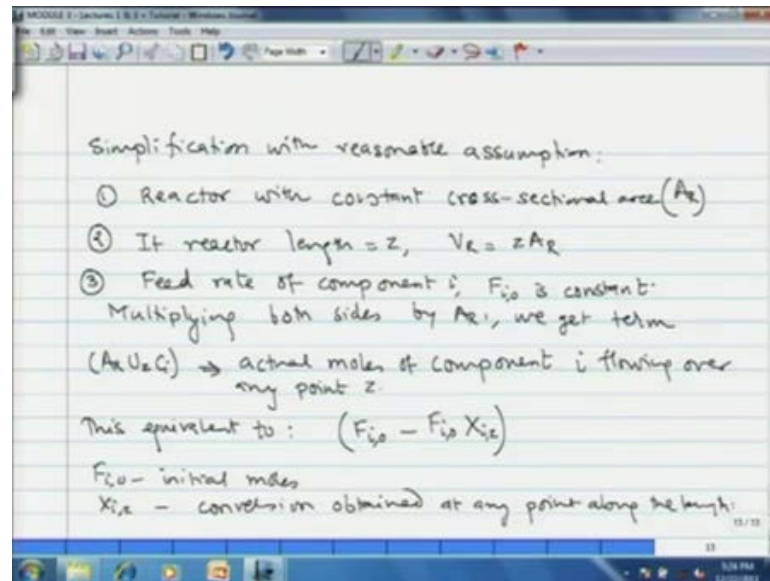 MODULE 3 - Lectures 1 & 2 + Tutorial - Windows Journal
File Edit View Insert Actions Tools Help
Page Width
Simplification with reasonable assumption:
① Reactor with constant cross-sectional area (A_R)
② If reactor length = z, V_R = z A_R
③ Feed rate of component i, F_{i,0} is constant.
Multiplying both sides by A_R, we get term
(A_R U_z C_i) → actual moles of component i flowing over
any point z.
This equivalent to: (F_{i,0} - F_{i,0} X_{i,z})
F_{i,0} - initial moles
X_{i,z} - conversion obtained at any point along the length.
13/13
13
5:26 PM